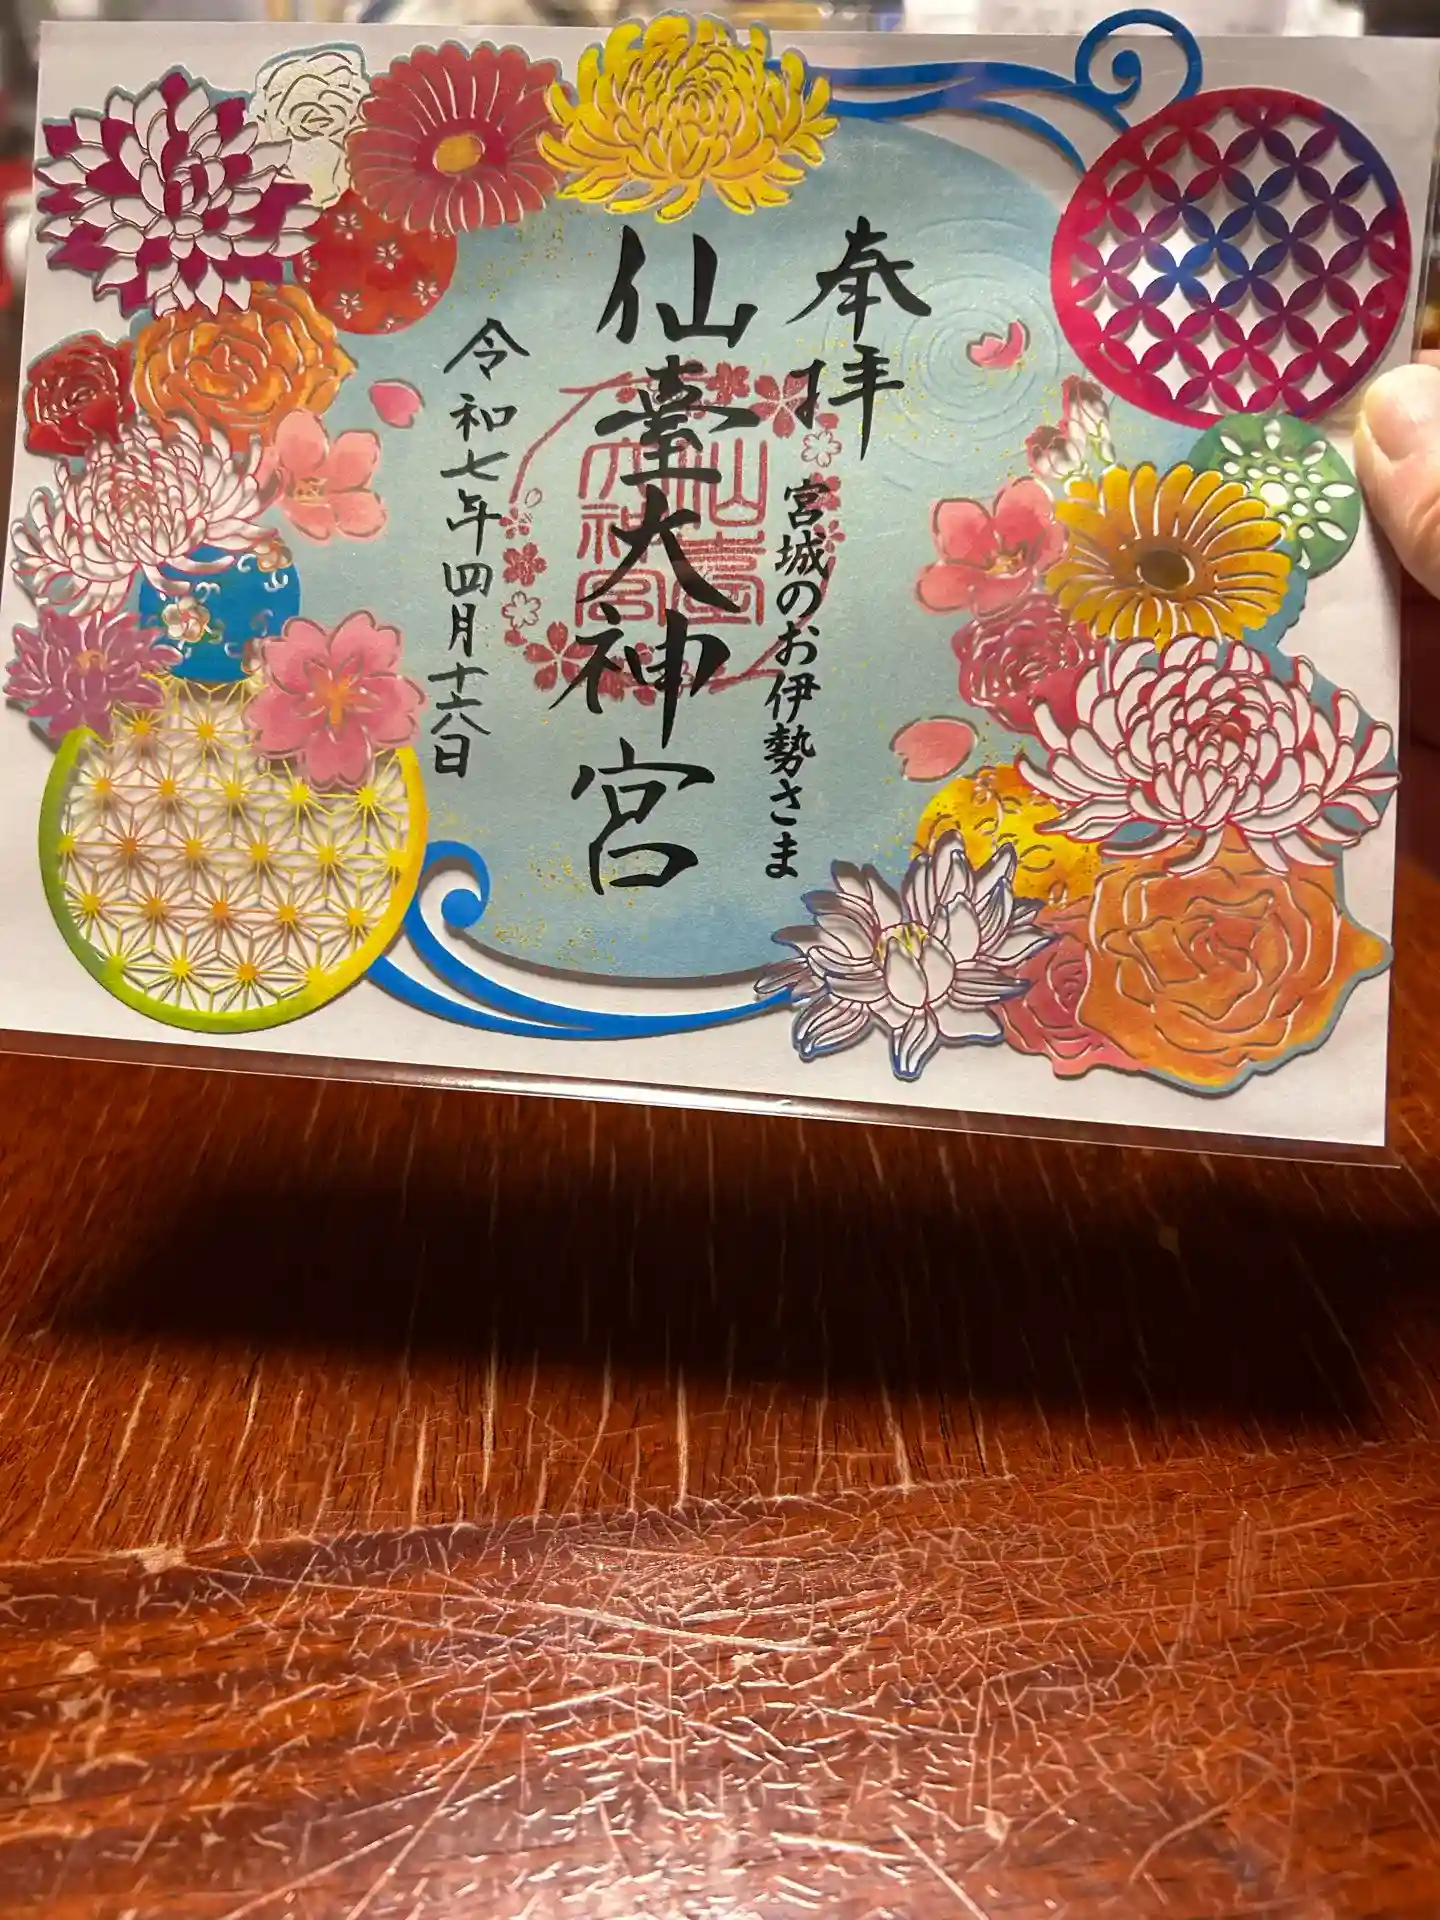 奉拝
宮城のお伊勢さま
仙臺大神宮
仙臺
大神宮
令和七年四月十六日